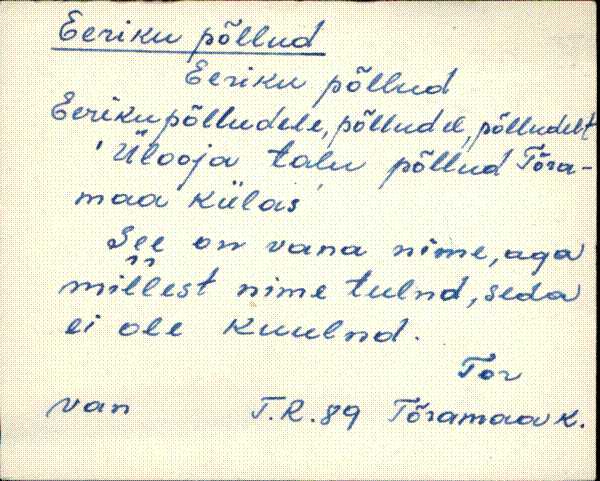 Eeriku põllud
Eeriku põllud
Eerikupõlludele, põlludel, põlludelt
'Ülooja talu põllud Tõra-
maa külas'
See on vana nime, aga
millest nime tulnd, seda
ei ole kuulnd.
Tor
van T.R.89 Tõramaa k.